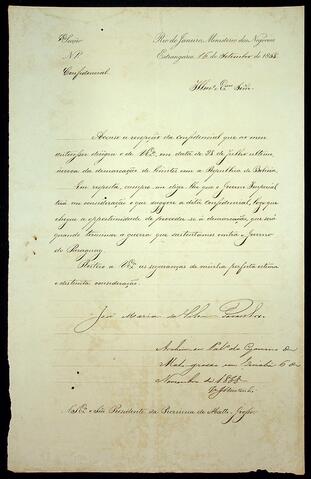 Secção
Rio de Janeiro, Ministerio dos Negocios
N 1.
Estrangeiros, 16 de Setembro de 1868.
Confidencial
Illmo. Exmo. Snr.
Accuso a recepção da confidencial que ao meu
antecessor dirigio o de VEx., em data de 28 de Julho ultimo,
acerca da demarcação de limites com a Republica de Bolivia.
Em resposta, cumpre-me dizer-lhe que o Governo Imperial
terá em consideração o que suggere a dita confidencial, logo que
chegue a opportunidade de proceder-se á demarcação, que será
quando terminar a guerra que sustentamos contra o Governo
do Paraguay.
Reitero a VEx. as seguranças de minha perfeita estima
e distincta consideração.
José Maria da Silva Paranhos
Archive-se. Pal.º do Governo de
Mato-grosso em Cuiabá 6 de
Novembro de 1868
A S. Ex. o Snr. Presidente da Provincia de Matto-Grosso